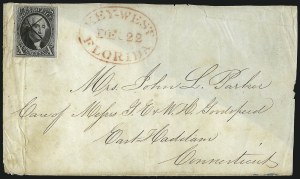 KEY-WEST
DEC 22
FLORIDA
X X
Mrs John L. Parker
Care of Messrs G. E & W. H. Goodspeed
East Haddam
Connecticut